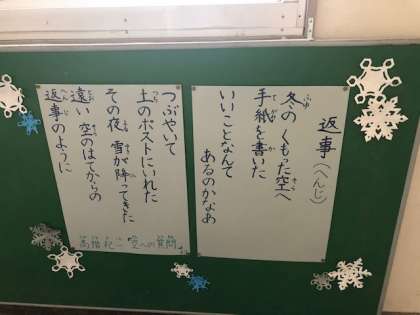 返事（へんじ）
冬の くもった空へ
手紙を書いた
いいことなんて
あるのかなあ
つぶやいて
土のポストにいれた
その夜 雪が降ってきた
遠い 空のはてからの
返事のように
高階杞一「空への質問」より